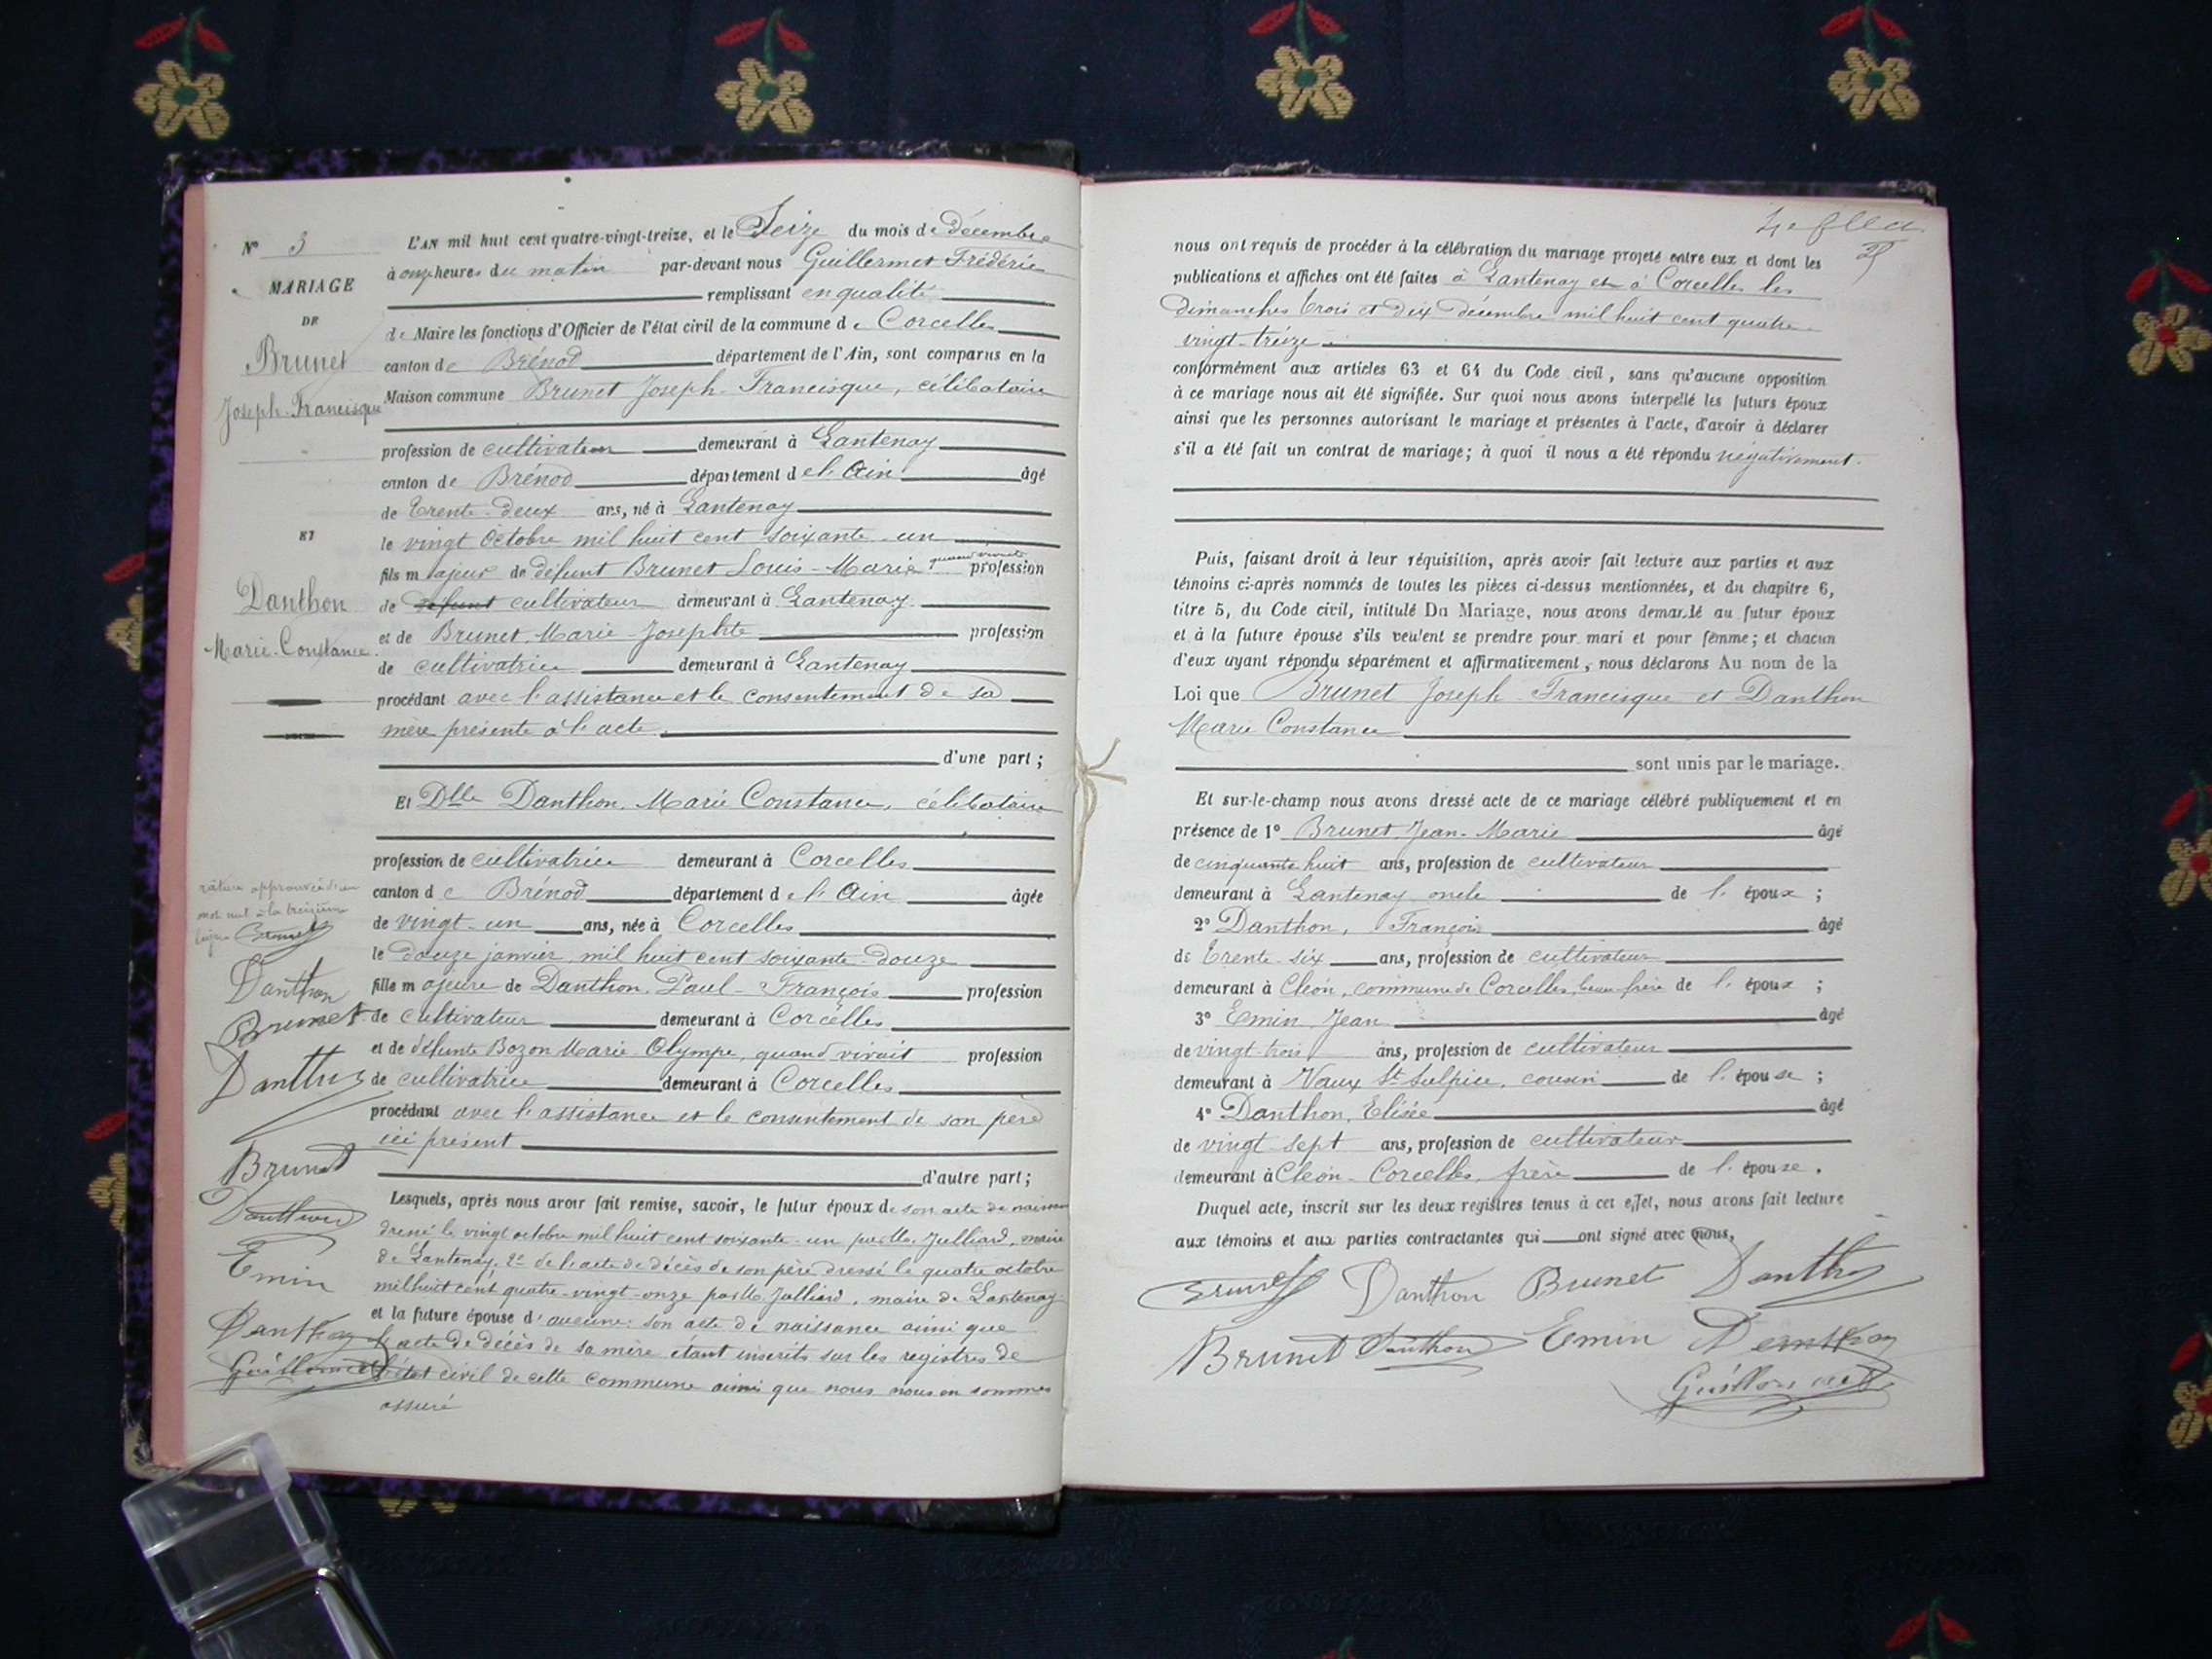 N° 3
MARIAGE
DE
Brunet
Joseph-Francisque
ET
Danthon
Marie-Constance
rature approuvée d'un
mot nul à la treizième
ligne Brunet
Danthon
Brunet
Danthon
Brunet
Danthon
Emin
Danthon
Guillermet
L'AN mil huit cent quatre-vingt-treize, et le Seize du mois de décembre
à onze heures du matin par-devant nous Guillermet Frédéric
remplissant en qualité
de Maire les fonctions d'Officier de l'état civil de la commune de Corcelles
canton de Brénod département de l'Ain, sont comparus en la
Maison commune Brunet Joseph-Francisque, célibataire
profession de cultivateur demeurant à Lantenay
canton de Brénod département de l'Ain âgé
de trente-deux ans, né à Lantenay
le vingt Octobre mil huit cent soixante-un
fils majeur de défunt Brunet Louis-Marie quand vivait profession
de défunt cultivateur demeurant à Lantenay
et de Brunet Marie-Josephte profession
de cultivatrice demeurant à Lantenay
procédant avec l'assistance et le consentement de sa
mère présente à l'acte
d'une part ;
Et Dlle Danthon Marie Constance, célibataire
profession de cultivatrice demeurant à Corcelles
canton de Brénod département de l'Ain âgée
de vingt-un ans, née à Corcelles
le douze janvier mil huit cent soixante-douze
fille majeure de Danthon Paul-François profession
de cultivateur demeurant à Corcelles
et de défunte Bozon Marie Olympe, quand vivait profession
de cultivatrice demeurant à Corcelles
procédant avec l'assistance et le consentement de son père
ici présent
d'autre part ;
Lesquels, après nous avoir fait remise, savoir, le futur époux de son acte de naissance
dressé le vingt octobre mil huit cent soixante-un par Mr. Julliard, maire
de Lantenay, 2° de l'acte de décès de son père dressé le quatre octobre
mil huit cent quatre-vingt-onze par Mr. Julliard, maire de Lantenay
et la future épouse d'aucune: son acte de naissance ainsi que
l'acte de décès de sa mère étant inscrits sur les registres de
l'état civil de cette commune ainsi que nous nous en sommes
assuré
nous ont requis de procéder à la célébration du mariage projeté entre eux et dont les
publications et affiches ont été faites à Lantenay et à Corcelles les
dimanches trois et dix décembre mil huit cent quatre-
vingt-treize
conformément aux articles 63 et 64 du Code civil, sans qu'aucune opposition
à ce mariage nous ait été signifiée. Sur quoi nous avons interpellé les futurs époux
ainsi que les personnes autorisant le mariage et présentes à l'acte, d'avoir à déclarer
s'il a été fait un contrat de mariage; à quoi il nous a été répondu négativement.
Puis, faisant droit à leur réquisition, après avoir fait lecture aux parties et aux
témoins ci-après nommés de toutes les pièces ci-dessus mentionnées, et du chapitre 6,
titre 5, du Code civil, intitulé Du Mariage, nous avons demandé au futur époux
et à la future épouse s'ils veulent se prendre pour mari et pour femme; et chacun
d'eux ayant répondu séparément et affirmativement, nous déclarons Au nom de la
Loi que Brunet Joseph-Francisque et Danthon
Marie Constance
sont unis par le mariage.
Et sur-le-champ nous avons dressé acte de ce mariage célébré publiquement et en
présence de 1° Brunet Jean-Marie âgé
de cinquante huit ans, profession de cultivateur
demeurant à Lantenay oncle de l'époux ;
2° Danthon, François âgé
de trente-six ans, profession de cultivateur
demeurant à Cléon, commune de Corcelles, beau-frère de l'époux ;
3° Emin Jean âgé
de vingt-trois ans, profession de cultivateur
demeurant à Vaux St Sulpice, cousin de l'épouse ;
4° Danthon, Elisée âgé
de vingt-sept ans, profession de cultivateur
demeurant à Cléon-Corcelles, frère de l'épouse.
Duquel acte, inscrit sur les deux registres tenus à cet effet, nous avons fait lecture
aux témoins et aux parties contractantes qui ont signé avec nous.
Brunet Danthon Brunet Danthon
Brunet Danthon Emin Danthon
Guillermet